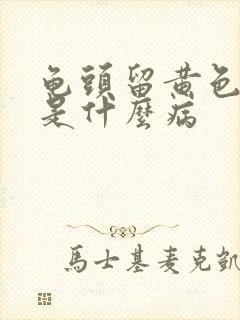 龟頭留黄色
是什麼病
馬士基麦克凱